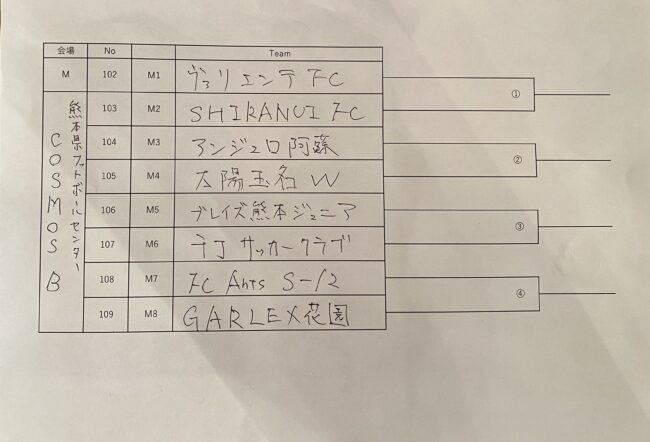 会場 No Team
M 102 M1 ヴァリエンテFC
熊本県フットボールセンター COSMOS B
103 M2 SHIRANUI FC
①
104 M3 アンジェロ阿蘇
105 M4 太陽玉名W
②
106 M5 ブレイズ熊本ジュニア
107 M6 千丁サッカークラブ
③
108 M7 FC Ants S-12
109 M8 GARLEX花園
④